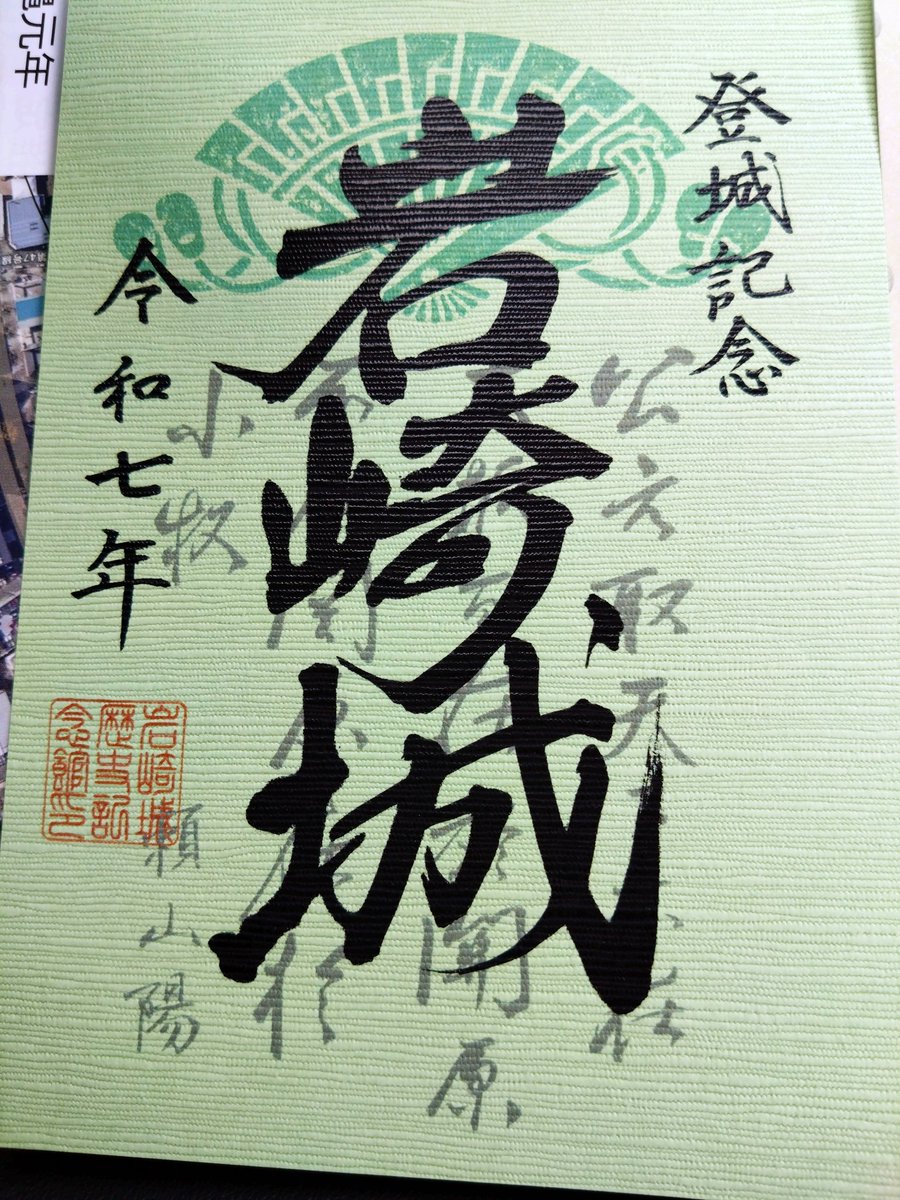 登城記念
岩崎城
令和七年
公之取天
在
原
小牧
頼山陽
岩崎城
歴史記
念館印
元年
47号線